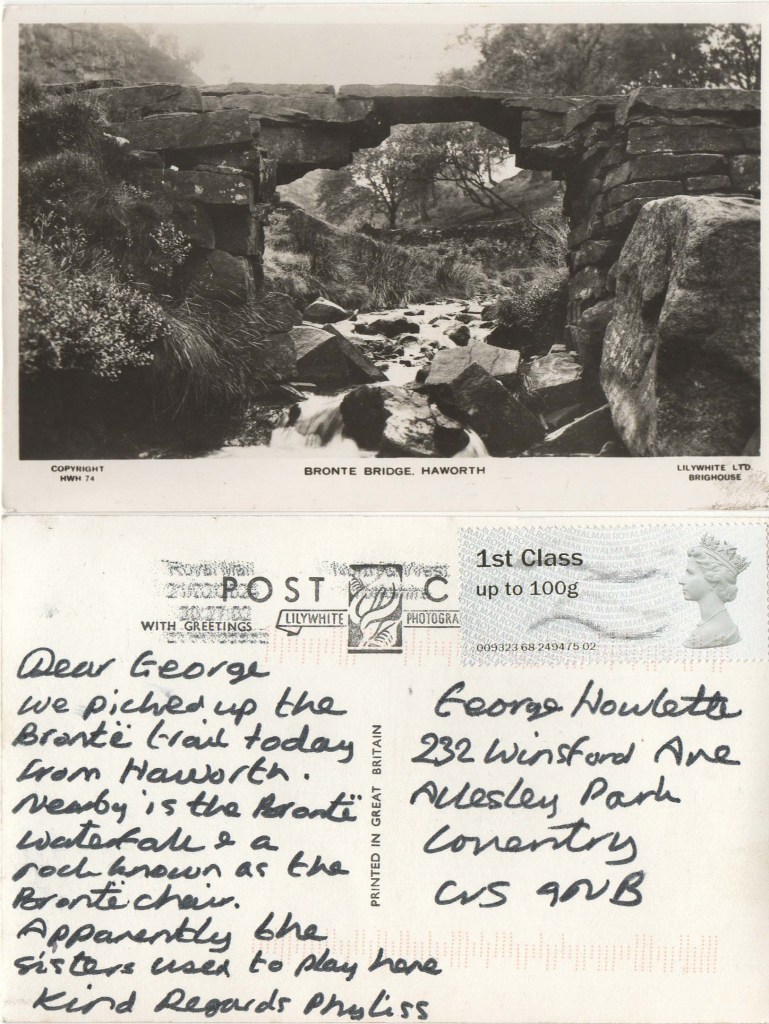 COPYRIGHT
HWH 74
BRONTE BRIDGE. HAWORTH
LILYWHITE LTD.
BRIGHOUSE
Royal Mail
POST C
WITH GREETINGS
LILYWHITE PHOTOGRA
1st Class
up to 100g
009323 68 249475 02
Dear George
we picked up the
Brontë trail today
from Haworth.
Nearby is the Brontë
waterfall & a
rock known as the
Brontë chair.
Apparently the
sisters used to play here
Kind Regards Phyliss
PRINTED IN GREAT BRITAIN
George Howlett
232 Winsford Ave
Allesley Park
Coventry
CV5 9NB